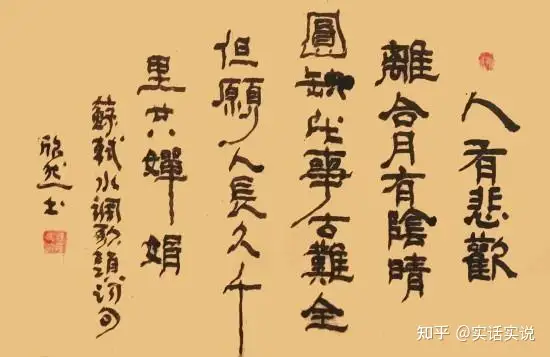 人有悲歡
離合月有陰晴
圓缺此事古難全
但願人長久千
里共嬋娟
蘇軾水調歌頭詞句
欣然书
知乎 @实话实说